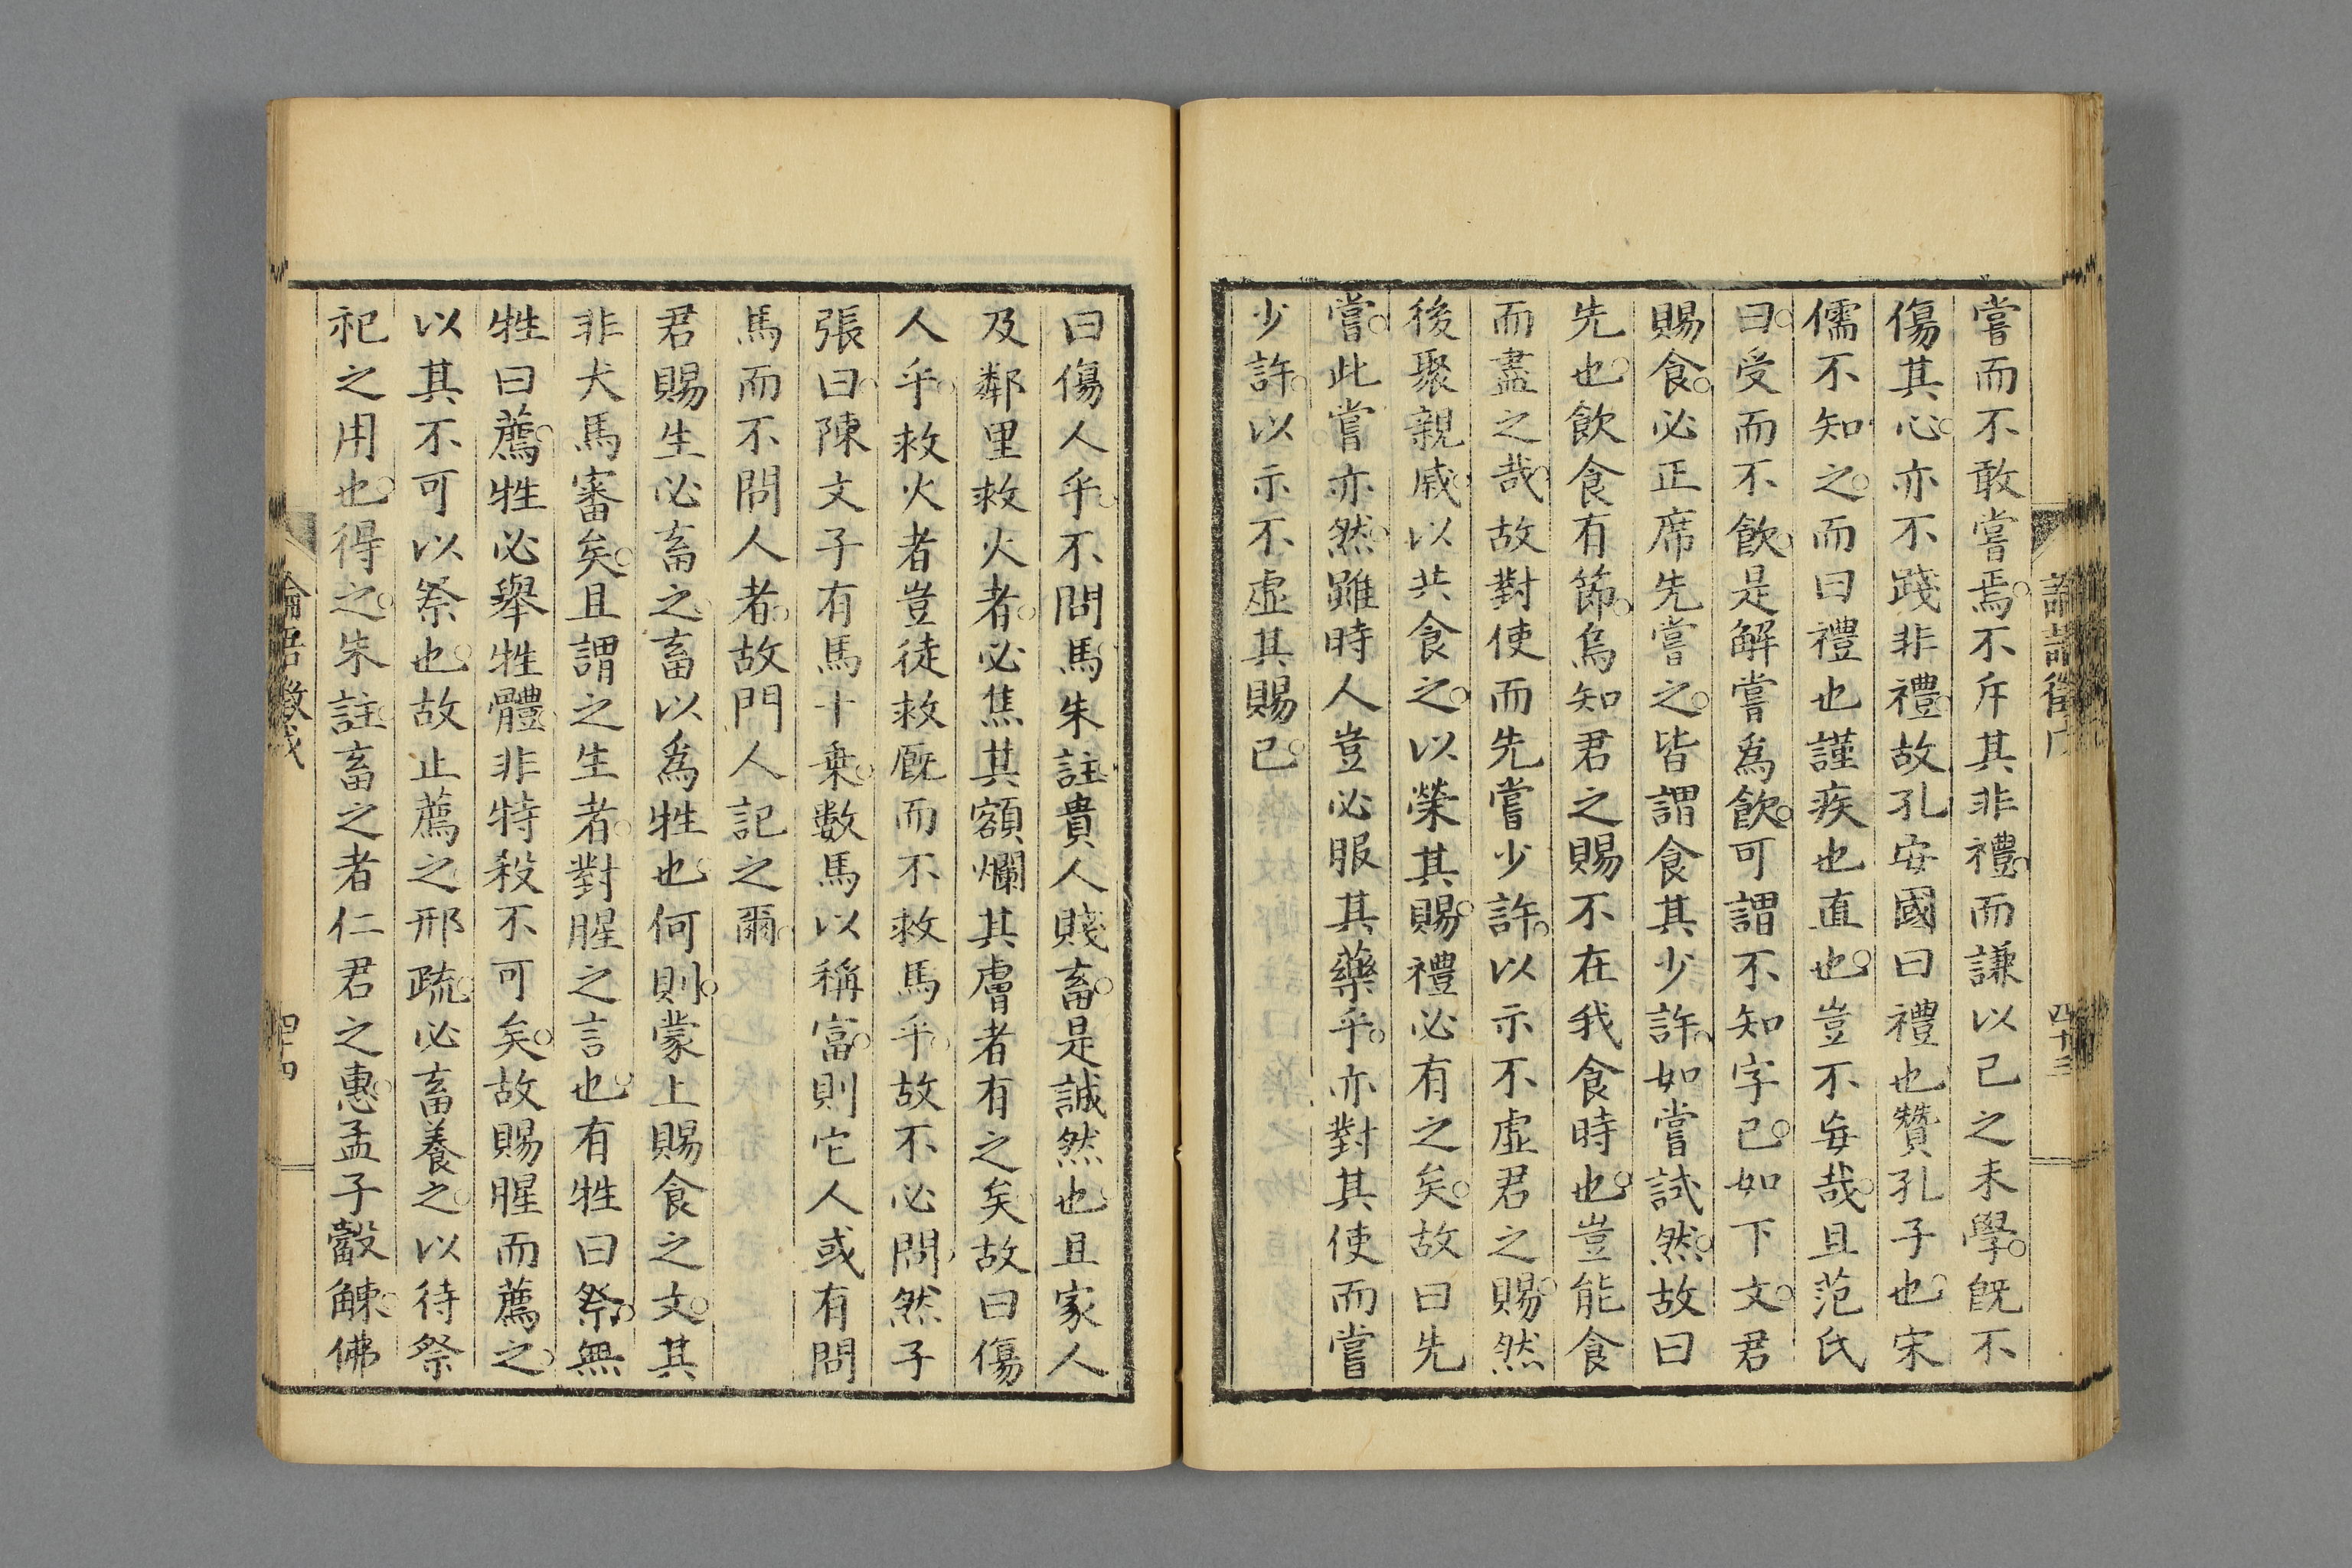 論語徵戊
四十三
嘗而不敢嘗焉。不斥其非禮。而謙以己之未學。既不
傷其心。亦不踐非禮。故孔安國曰禮也贊孔子也。宋
儒不知之。而曰禮也謹疾也直也。豈不每哉。且范氏
曰。受而不飲。是解嘗爲飲。可謂不知字已。如下文。君
賜食。必正席先嘗之。皆謂食其少許。如嘗試然。故曰
先也。飲食有節。烏知君之賜不在我食時也。豈能食
而盡之哉。故對使而先嘗少許。以示不虛君之賜。然
後聚親戚。以共食之。以榮其賜。禮必有之矣。故曰先
嘗。此嘗亦然。雖時人豈必服其藥乎。亦對其使而嘗
少許。以示不虛其賜已。
曰傷人乎。不問馬朱註。貴人賤畜。是誠然也。且家人
及鄰里救火者。必焦其額爛其膚者有之矣。故曰傷
人乎。救火者豈徒救厩而不救馬乎。故不必問。然子
張曰。陳文子有馬十乗。數馬以稱富。則它人或有問
馬而不問人者。故門人記之爾。
君賜生必畜之。畜以爲牲也。何則。蒙上賜食之文。其
非犬馬審矣。且謂之生者。對腥之言也。有牲曰祭。無
牲曰薦。牲必舉牲體。非特殺不可矣。故賜腥而薦之。
以其不可以祭也。故止薦之邢疏。必畜養之。以待祭
祀之用也。得之。朱註。畜之者仁君之惠。孟子觳觫。佛
論語徵戊
四十四